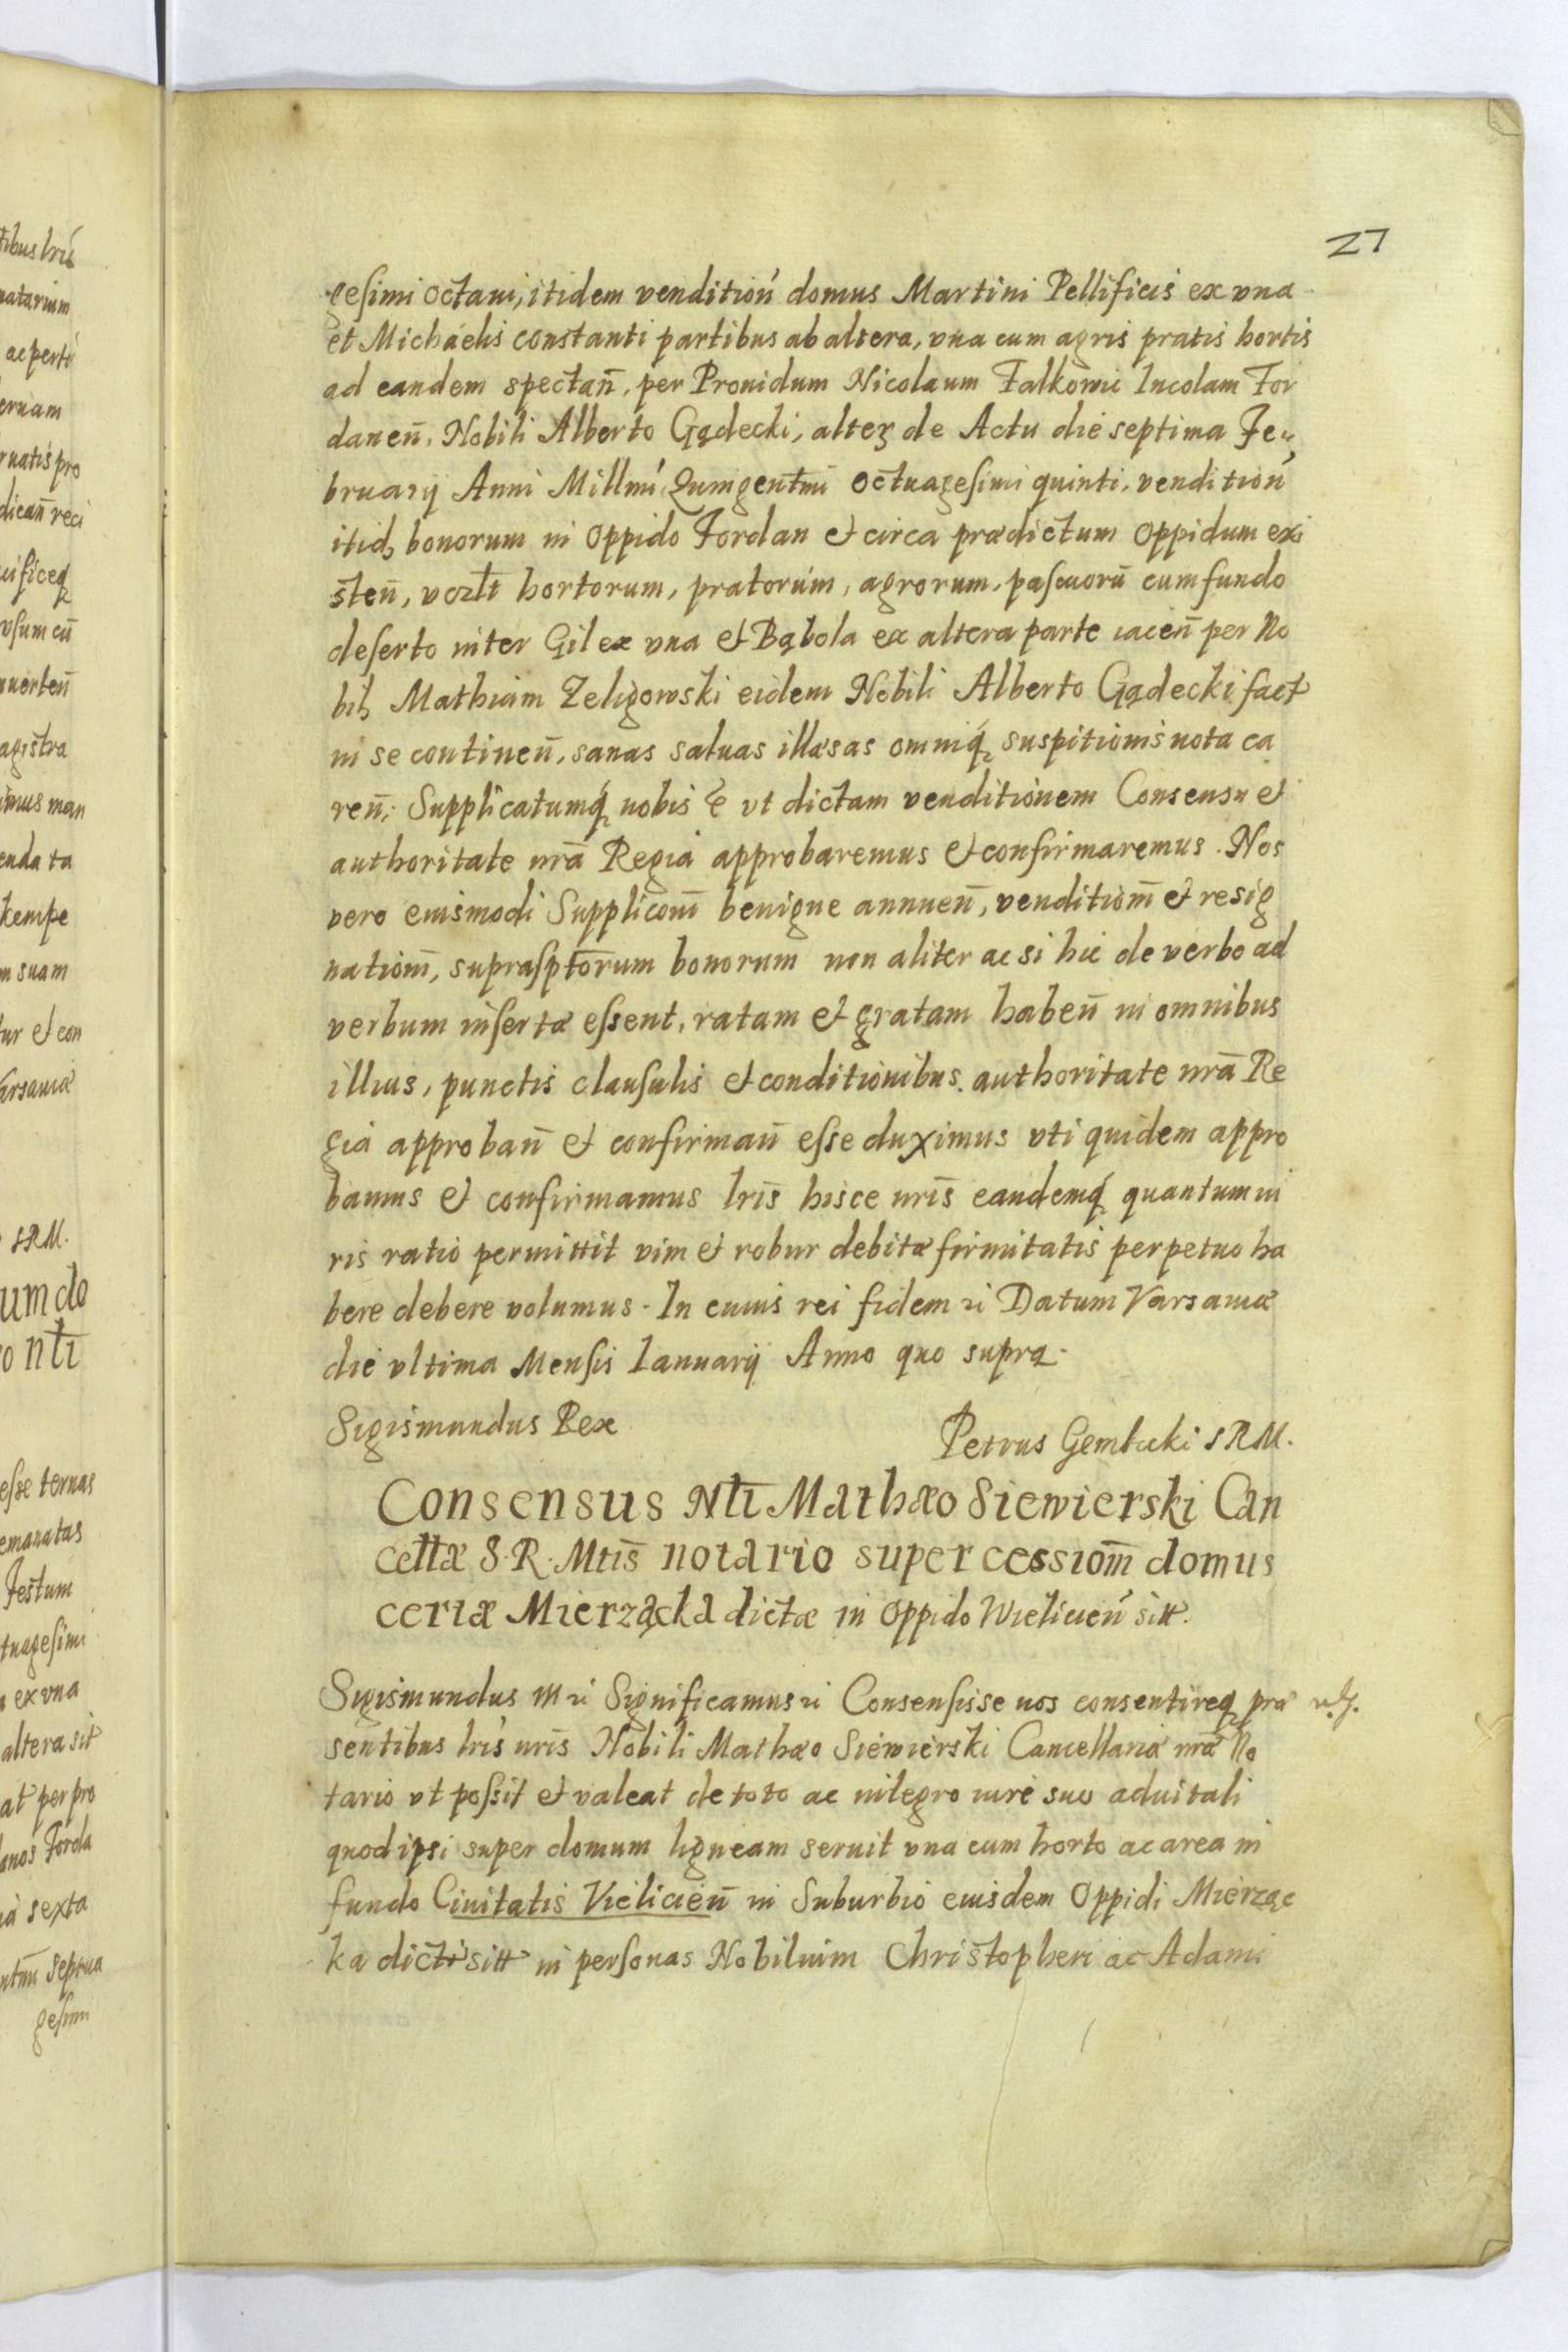 27
gesimi octaui, itidem venditioń domus Martini Pellificis ex vna
et Michaelis constanti partibus ab altera, vna cum agris pratis hortis
ad eandem spectan̄, per Prouidum Nicolaum Falkowic Incolam For
danen̄, Nobili Alberto Gądecki, alterȝ de Actu die septima Fe„
bruarÿ Anni Millmi Quingentmi octuagesimi quinti, vendition̄
itidȝ bonorum in oppido Fordan et circa prædictum oppidum exi
sten̄, vczlt hortorum, pratorum, agrorum, pascuorū cum fundo
deserto inter Gil ex vna et Bąbola ex altera parte iacen̄ per No
bilȝ Mathiam Zeligowski eidem Nobili Alberto Gądecki fact
in se continen̄, sanas saluas illæsas omniq́ȝ suspitionis nota ca
ren̄: Supplicatumq́ȝ nobis ē vt dictam venditionem Consensu et
authoritate nrā Regia approbaremus et confirmaremus. Nos
vero eiusmodi Supplicom̄ benigne annuen̄, venditiom̄ et resig
natiom̄, suprasptōrum bonorum non aliter ac si hic de verbo ad
verbum insertæ essent, ratam et gratam haben̄ in omnibus
illius, punctis clausulis et conditionibus. authoritate nrā Re
gia approban̄ et confirman̄ esse duximus vti quidem appro
bamus et confirmamus lris̄ hisce nris̄ eandemq́ȝ quantum iu
ris ratio permittit vim et robur debitæ firmitatis perpetuo ha
bere debere volumus. In cuius rei fidem ꝛi Datum Varsauiæ
die vltima Mensis Ianuarÿ Anno quo supra.
Sigismundus Rex
Petrus Gembicki SRM.
Consensus Nlī Mathæo Siewierski Can
cellæ S.R.Mtis̄ notario super cessiom̄ domus
certæ Mierzącka dictæ in oppido Wielicien̄ sitt.
Sigismundus III ꝛi Significamus ꝛi Consensisse nos consentireqȝ præ
sentibus lris̄ nris̄ Nobili Mathæo Siewierski Cancellariæ nrǣ No
tario vt possit et valeat de toto ac integro iure suo aduitali
quod ipsi super domum ligneam seruit vna cum horto ac area in
fundo Ciuitatis Vielicien̄ in Suburbio eiusdem Oppidi Mierząc
ka dicti sitt in personas Nobilium Christopheri ac Adami